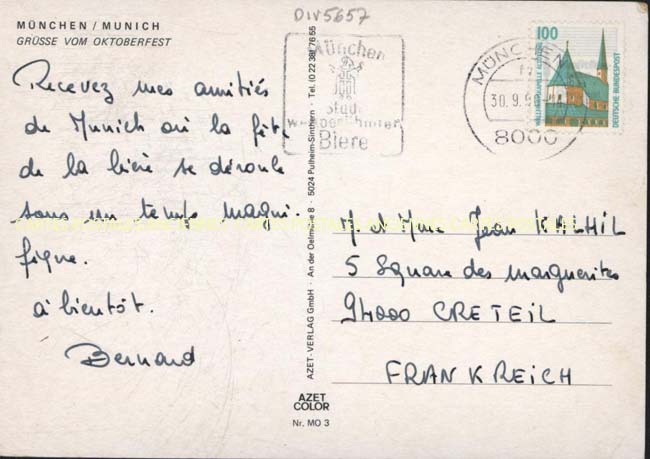 DIV5657
MÜNCHEN / MUNICH
GRÜSSE VOM OKTOBERFEST
Recevez mes amitiés
de Munich où la fête
de la bière se déroule
sous un temps magni-
fique.
à bientôt.
Bernard
AZET-VERLAG GmbH · An der Oelmühle 8 · 5024 Pulheim-Sinthern · Tel. (0 22 38) 76 55
AZET
COLOR
Nr. MO 3
München
Stadt
weltberühmter
Biere
MÜNCHEN
30.9.
8000
100
DEUTSCHE BUNDESPOST
M et Mme Jean KHLHIL
5 Square des marguerites
94000 CRETEIL
FRANKREICH